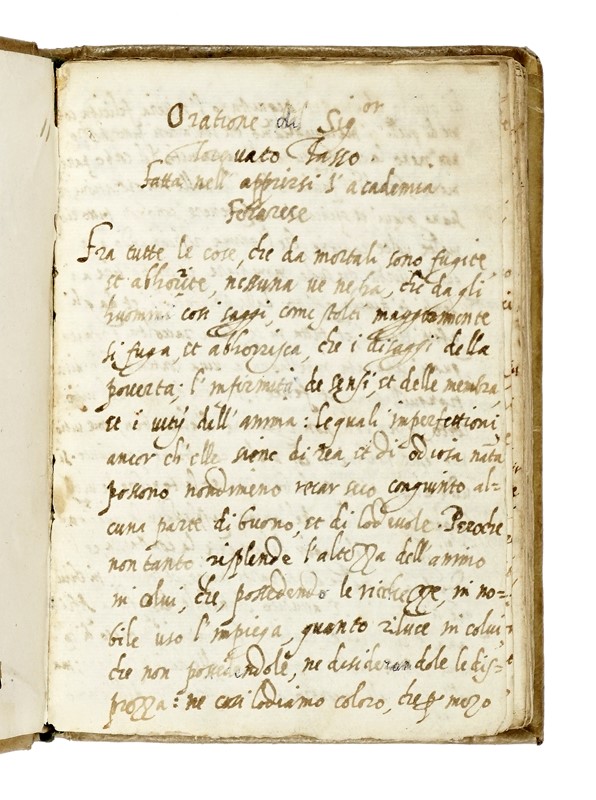 Oratione del Sig.or
Torquato Tasso.
Fatta nell' apprirsi l' academia
Ferarese
Fra tutte le cose, che da mortali sono fugite
et abhorite, nessuna ve ne ha, che da gli
huomini cosi saggi, come stolti maggiormente
si fuga, et abhorrisca, che i disaggi della
poverta; l' infirmità de sensi, et delle membra
et i vitij dell' anima: le quali imperfettioni
ancor ch' elle siene di rea, et di odiosa natura
possono nondimeno recar seco congiunto al=
cuna parte di buono, et di lodevole. Peroche
non tanto risplende l' altezza dell' animo
in colui, che, possedendo le richezze, in no=
bile uso l' impiega, quanto riluce in colui,
che non possedendole, ne desiderandole le dis=
prezza: ne cosi lodiamo coloro, che p mezo